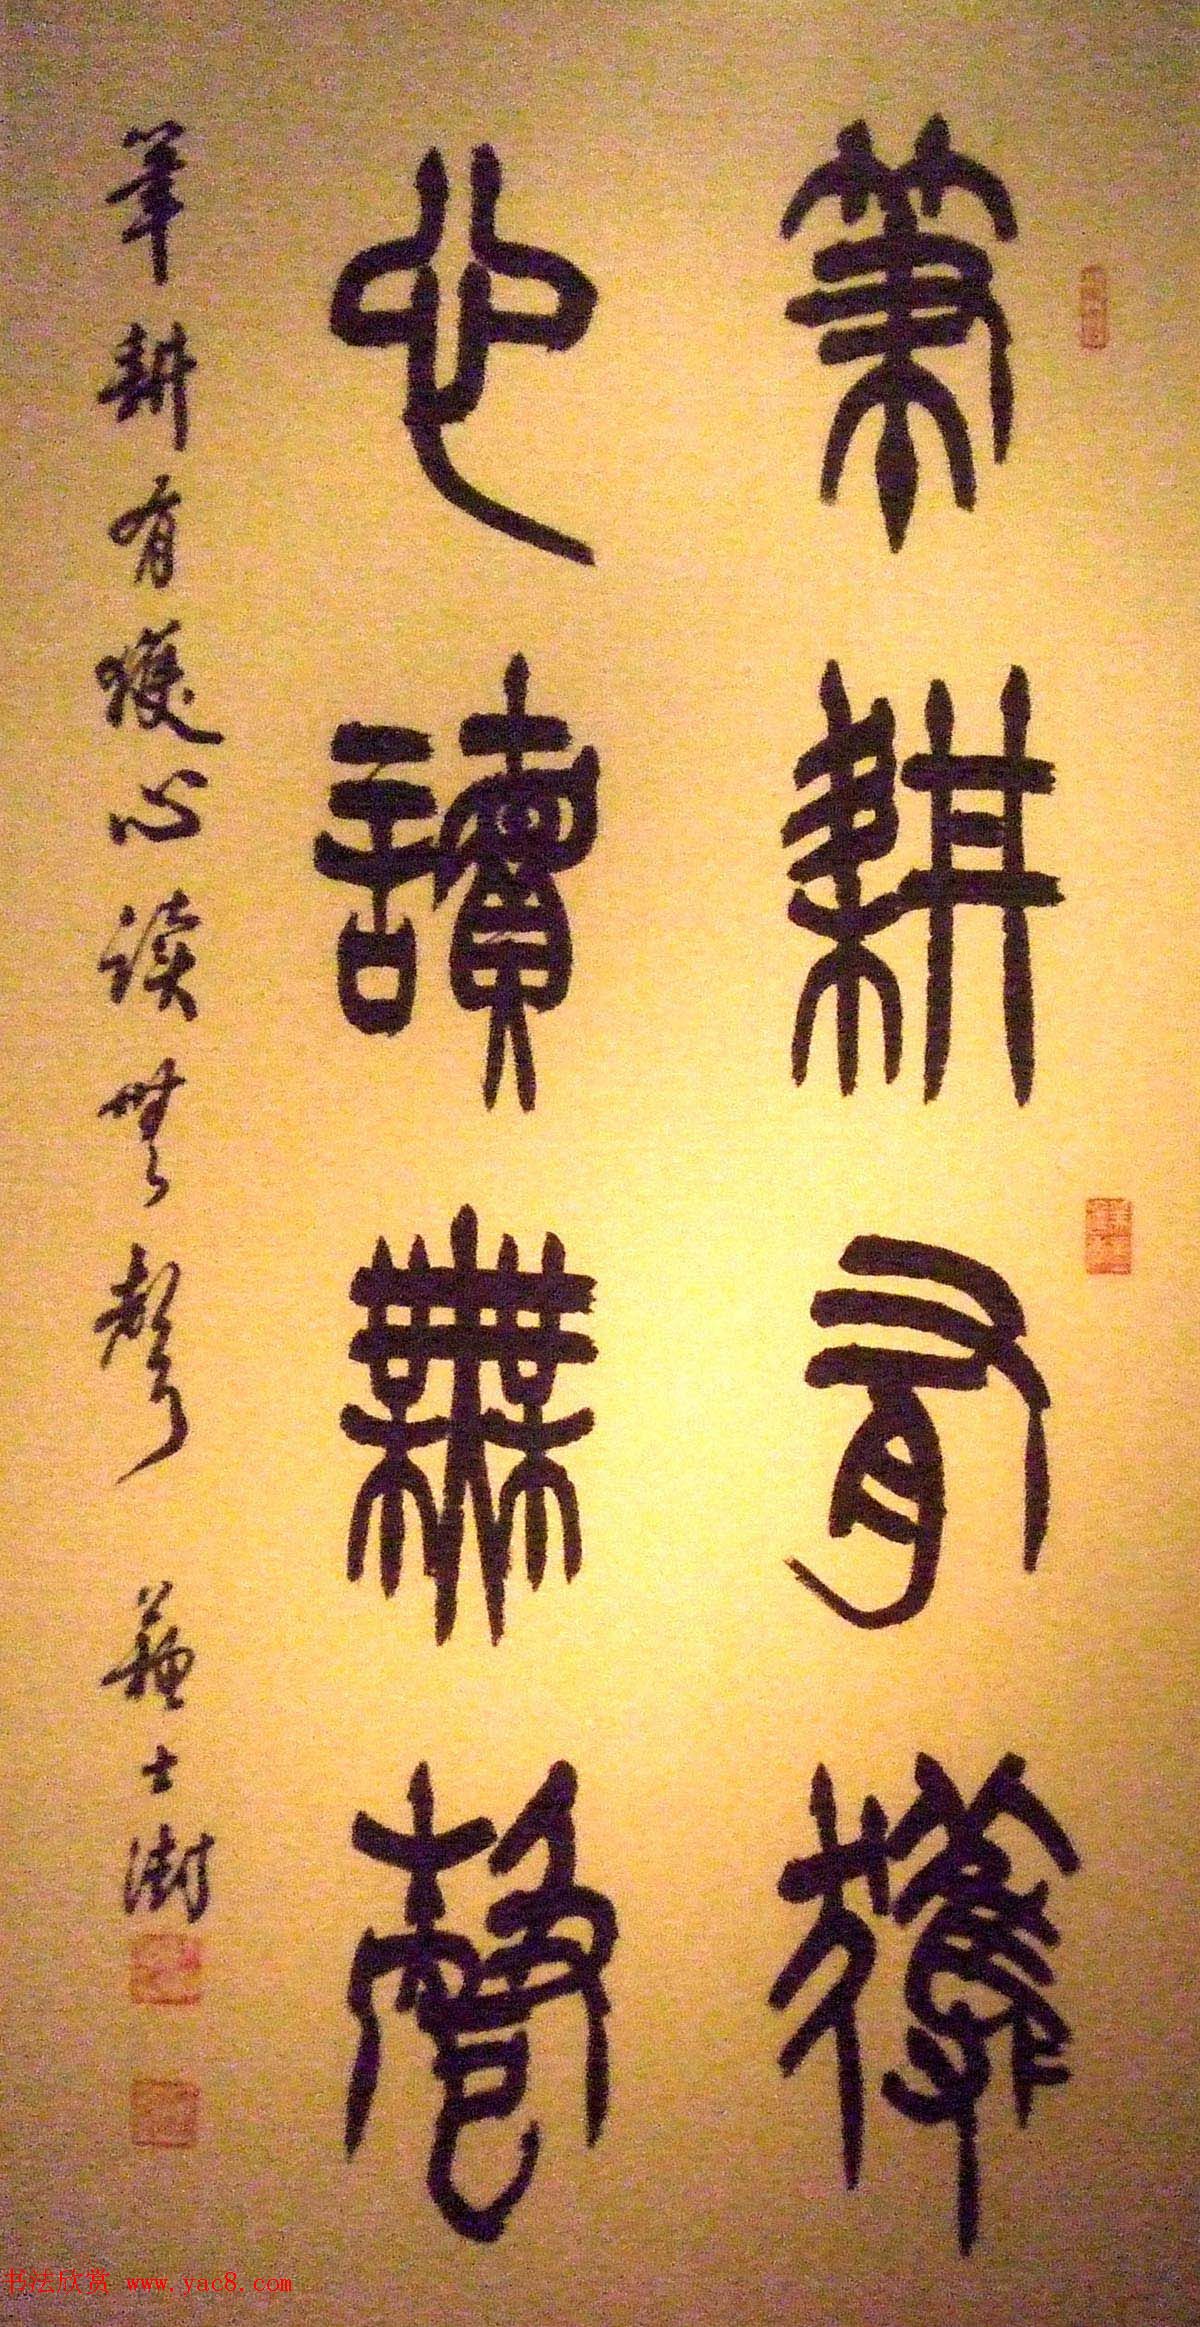 筆耕有獲
心讀無聲
筆耕有獲心读無聲 蘇士澍
书法欣赏 www.yac8.com